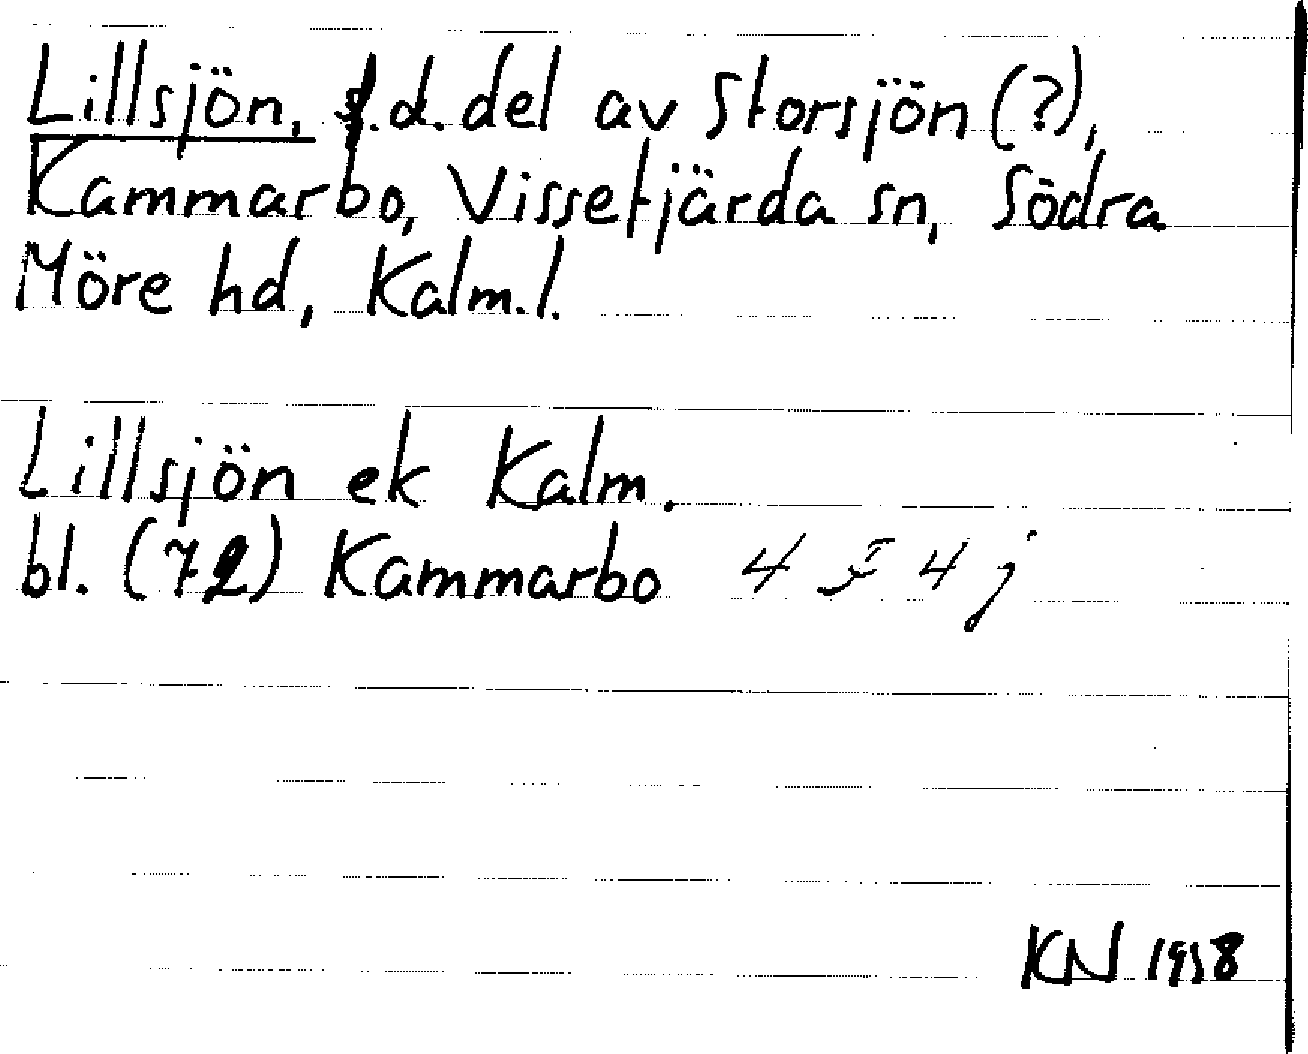 Lillsjön, f.d. del av Storsjön (?),
Kammarbo, Vissefjärda sn, Södra
Möre hd, Kalm. l.
Lillsjön ek Kalm.
bl. (72) Kammarbo 4 F 4 j
KN 1958